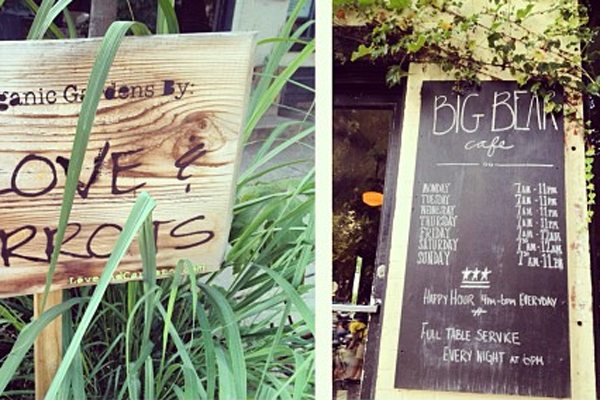 ganic Gardens By:
LOVE &
RROTS
BIG BEAR
cafe
MONDAY 7AM-11PM
TUESDAY 7AM-11PM
WEDNESDAY 7AM-11PM
THURSDAY 7AM-11PM
FRIDAY 7AM-12AM
SATURDAY 7AM-12AM
SUNDAY 7AM-11PM
HAPPY HOUR 4pm-6pm EVERYDAY
FULL TABLE SERVICE
EVERY NIGHT AT 6PM